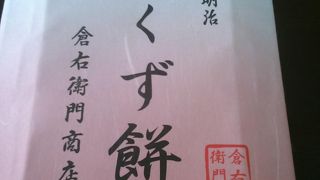 明治
くず餅
倉右衛門商店
倉右
衛門